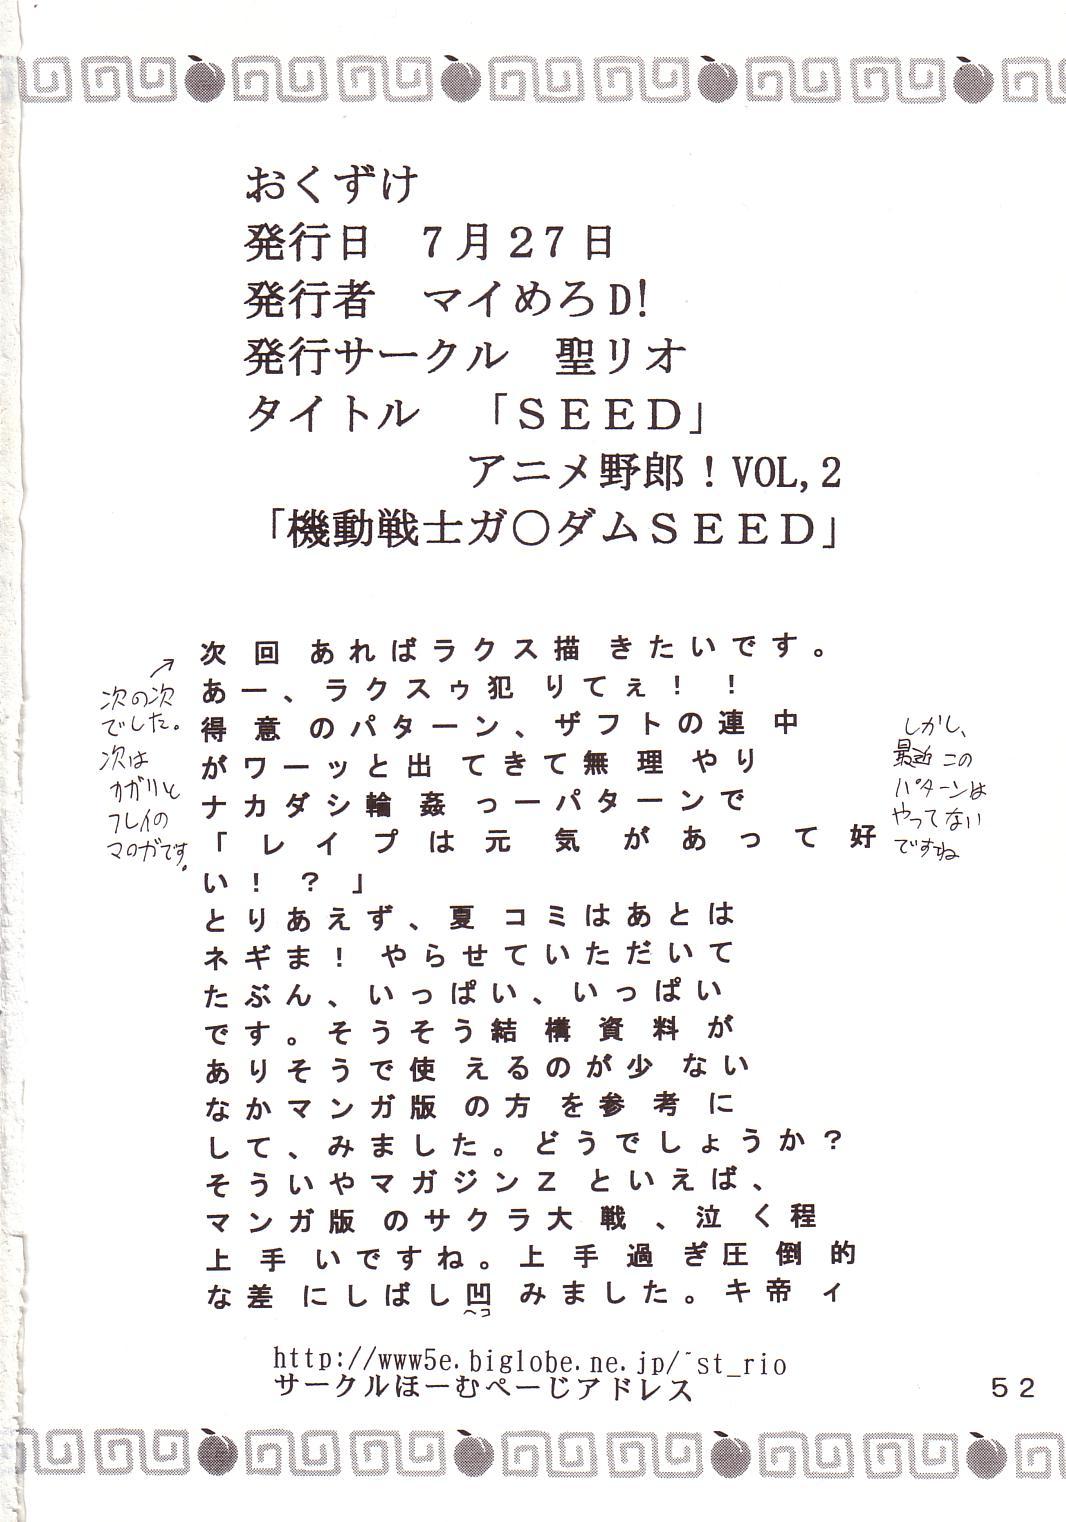 おくずけ
発行日　7月27日
発行者　マイめろD!
発行サークル　聖リオ
タイトル　「SEED」
アニメ野郎！VOL,2
「機動戦士ガ○ダムSEED」
次回あればラクス描きたいです。
あー、ラクスゥ犯りてぇ！！
得意のパターン、ザフトの連中
がワーッと出てきて無理やり
ナカダシ輪姦っーパターンで
「レイプは元気があって好
い！？」
とりあえず、夏コミはあとは
ネギま！やらせていただいて
たぶん、いっぱい、いっぱい
です。そうそう結構資料が
ありそうで使えるのが少ない
なかマンガ版の方を参考に
して、みました。どうでしょうか？
そういやマガジンZといえば、
マンガ版のサクラ大戦、泣く程
上手いですね。上手過ぎ圧倒的
な差にしばし凹みました。キ帝ィ
ヘコ
→
次の次
でした。
次は
カガリと
フレイの
マロガです。
しかし、
最近この
パターンは
やってない
ですね
http://www5e.biglobe.ne.jp/~st_rio
サークルほーむぺーじアドレス
52